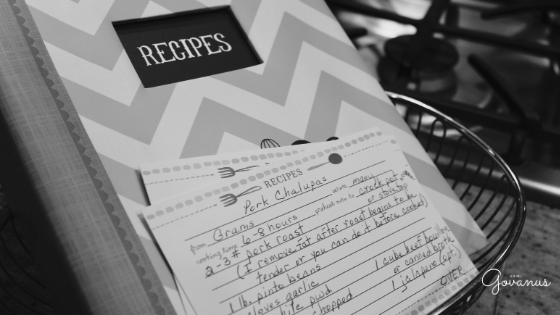 RECIPES
RECIPES
Pork Chalupas
from Grams serve menu
cooking time 6-8 hours preheat oven to crock pot
2-3 # pork roast or stovetop
(I remove fat after roast begins to be
tender or you can do it before cooked)
1 lb. pinto beans
cloves garlic 1 cube beef bou
or canned bro
chopped 1 jalapeño (opt.)
OVER
Govanus